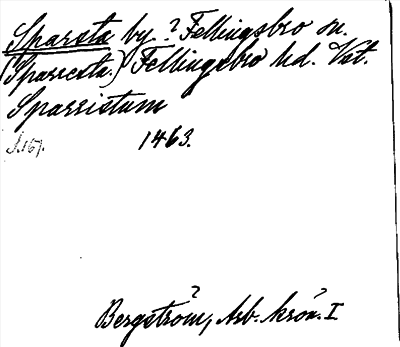 Sparsta by. ? Fellingsbro sn.
(Sparresta.) Fellingsbro hd. Vst.
Sparristum
1463.
Bergström, Arb. krön. I